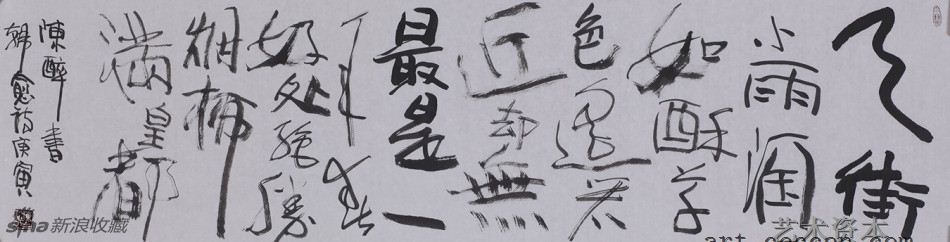 天街
小雨潤
如酥草
色遥看
近却無
最是一
年春
好处絕勝
烟柳
滿皇都
陳醉書
韓愈詩庚寅
sina新浪收藏
艺术资本